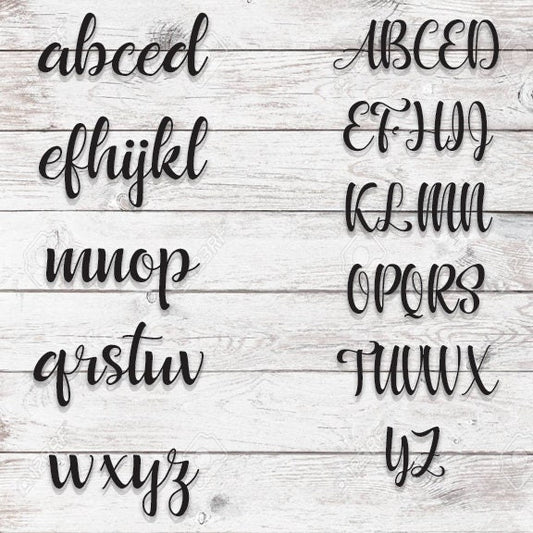 abced
efhijkl
mnop
qrstuv
wxyz
ABCED
EFHIJ
KLMN
OPQRS
TUVWX
YZ